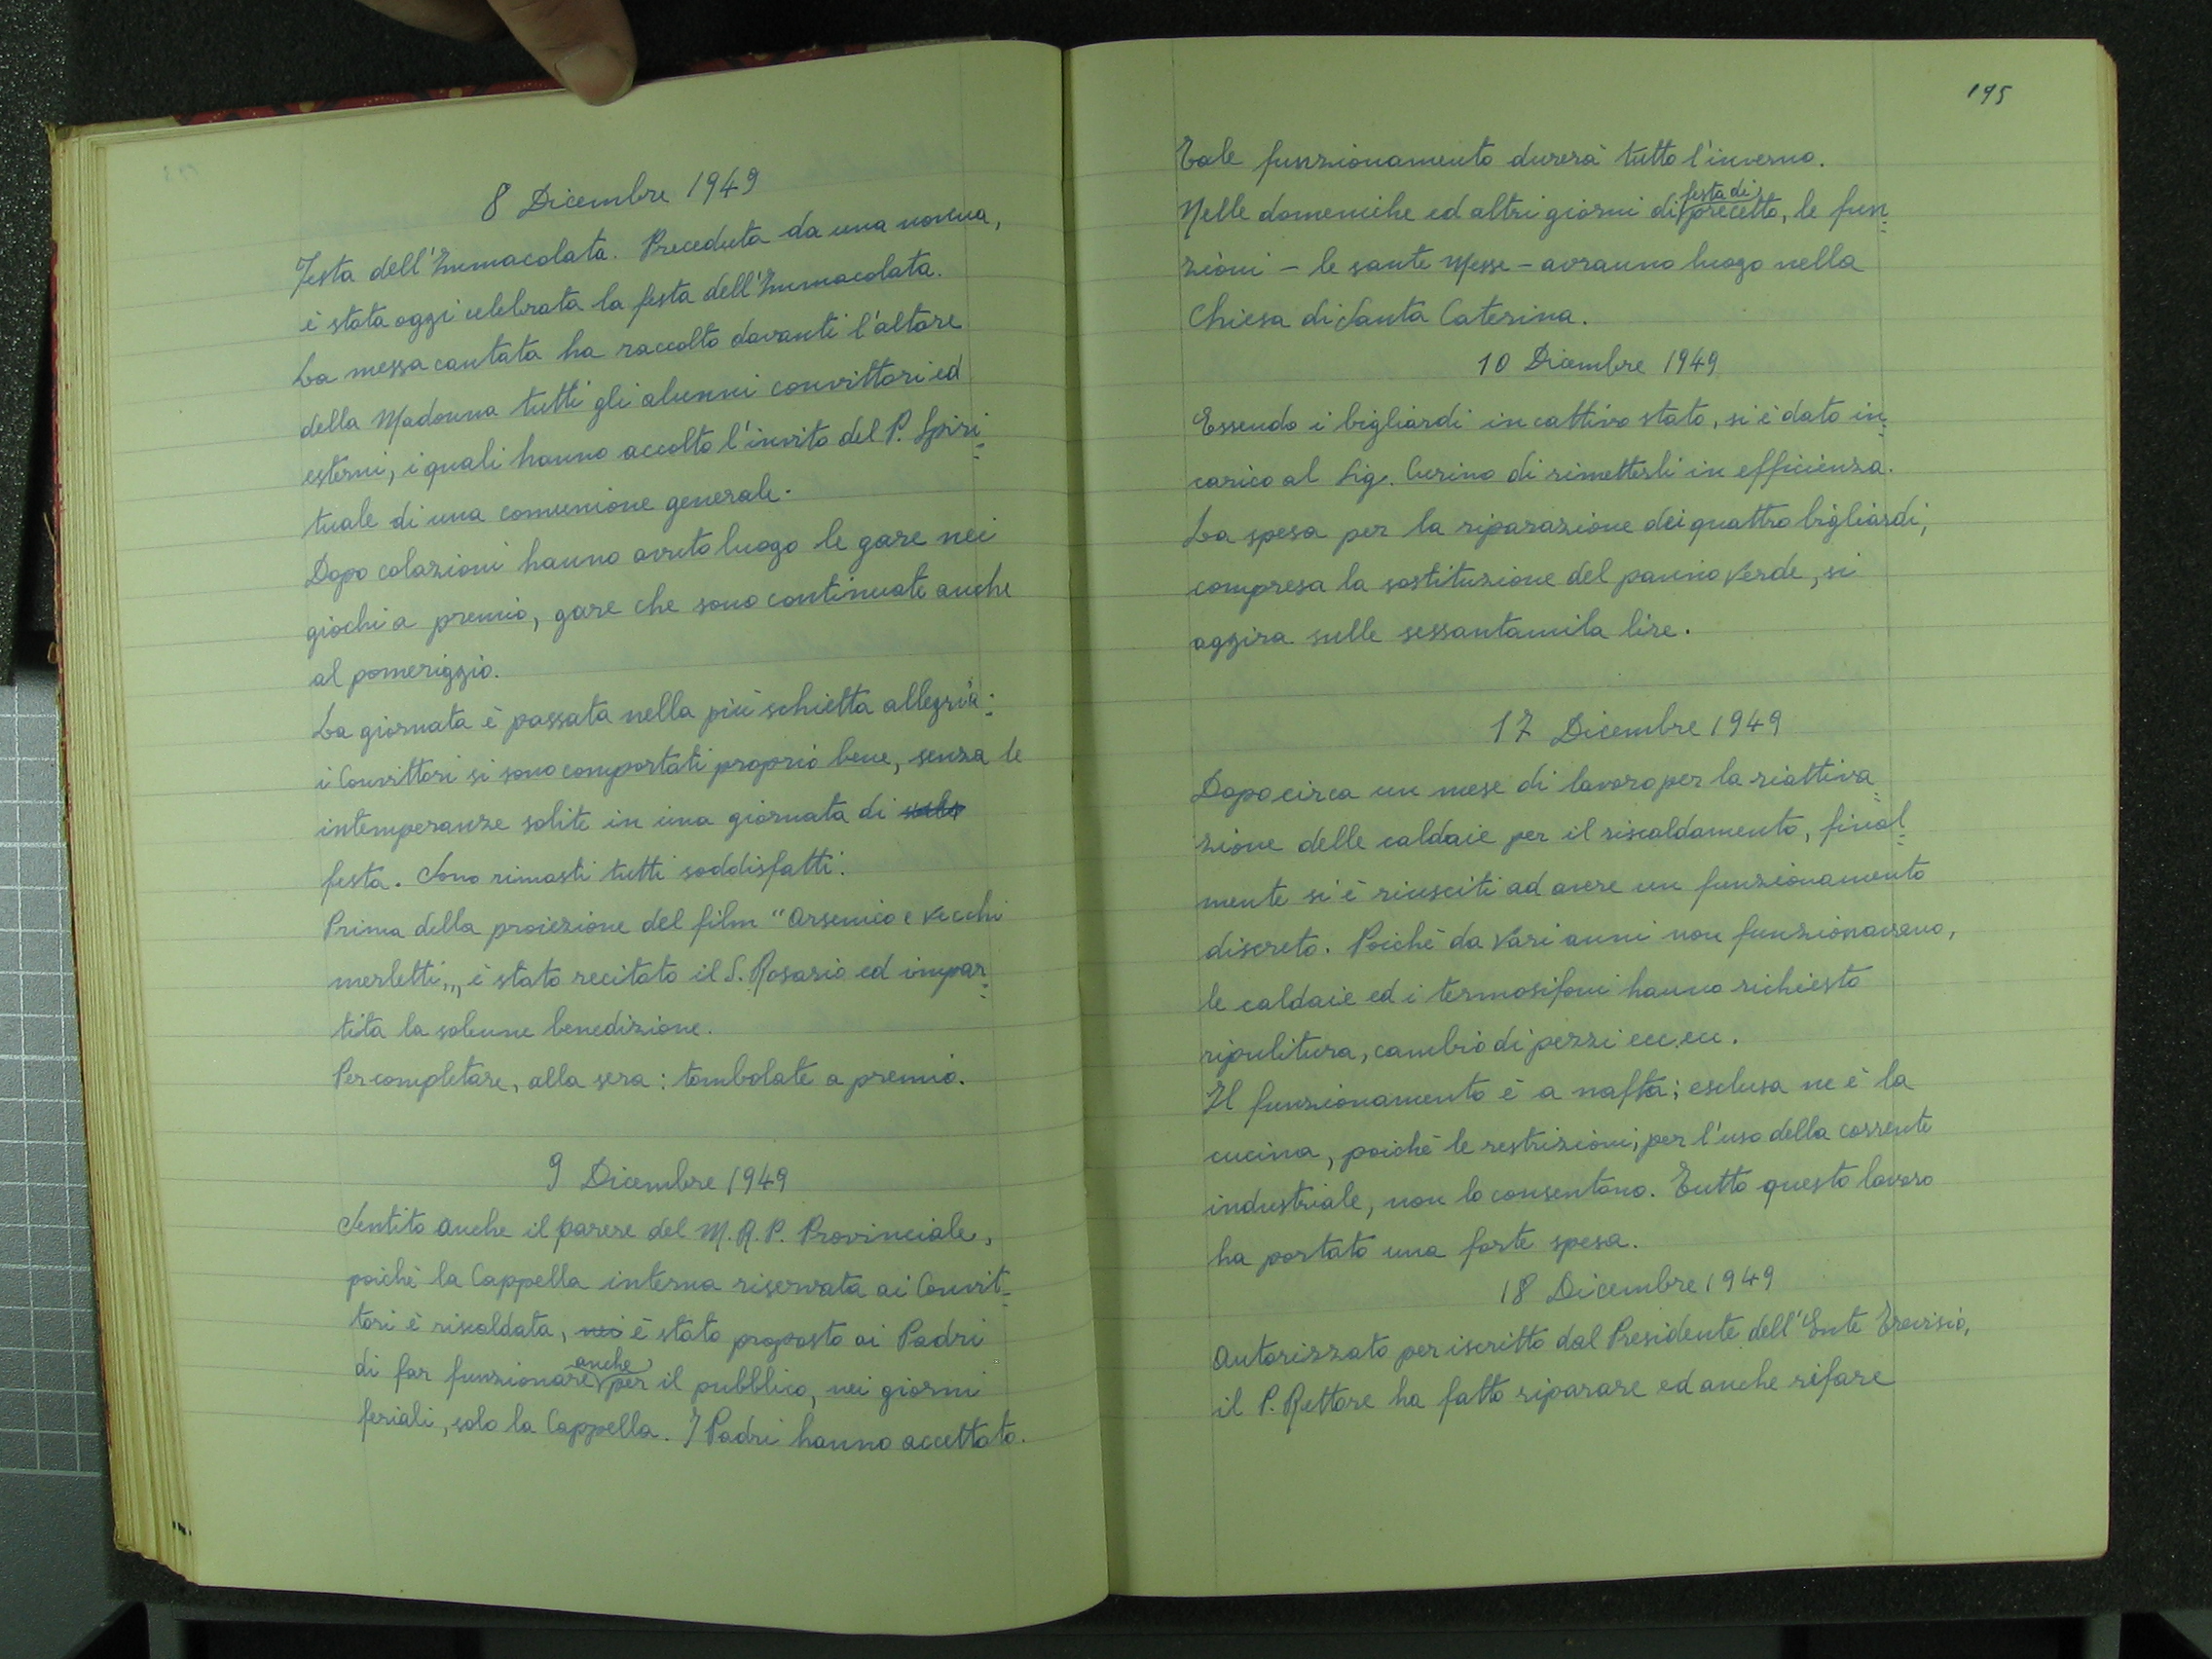 8 Dicembre 1949
Festa dell'Immacolata. Preceduta da una novena,
è stata oggi celebrata la festa dell'Immacolata.
La messa cantata ha raccolto davanti l'altare
della Madonna tutti gli alunni convittori ed
esterni, i quali hanno accolto l'invito del P. Spiri=
tuale di una comunione generale.
Dopo colazioni hanno avuto luogo le gare nei
giochi a premio, gare che sono continuate anche
al pomeriggio.
La giornata è passata nella più schietta allegria:
i Convittori si sono comportati proprio bene, senza le
intemperanze solite in una giornata di
festa. Sono rimasti tutti soddisfatti.
Prima della proiezione del film "Arsenico e vecchi
merletti,,, è stato recitato il S. Rosario ed impar=
tita la solenne benedizione.
Per completare, alla sera: tombolate a premio.
9 Dicembre 1949
Sentito anche il parere del M. R. P. Provinciale,
poichè la Cappella interna riservata ai Convit=
tori è riscaldata, nei è stato proposto ai Padri
di far funzionare anche per il pubblico, nei giorni
feriali, solo la Cappella. I Padri hanno accettato.
195
Tale funzionamento durerà tutto l'inverno.
Nelle domeniche ed altri giorni di festa di precetto, le fun=
zioni - le sante Messe - avranno luogo nella
Chiesa di Santa Caterina.
10 Dicembre 1949
Essendo i bigliardi in cattivo stato, si è dato in=
carico al Sig. Curino di rimetterli in efficienza.
La spesa per la riparazione dei quattro bigliardi,
compresa la sostituzione del panno verde, si
aggira sulle sessantamila lire.
17 Dicembre 1949
Dopo circa un mese di lavoro per la riattiva=
zione delle caldaie per il riscaldamento, final=
mente si è riusciti ad avere un funzionamento
discreto. Poichè da vari anni non funzionavano,
le caldaie ed i termosifoni hanno richiesto
ripulitura, cambio di pezzi ecc. ecc.
Il funzionamento è a nafta; esclusa ne è la
cucina, poichè le restrizioni, per l'uso della corrente
industriale, non lo consentono. Tutto questo lavoro
ha portato una forte spesa.
18 Dicembre 1949
Autorizzato per iscritto dal Presidente dell'Ente Trevisio,
il P. Rettore ha fatto riparare ed anche rifare